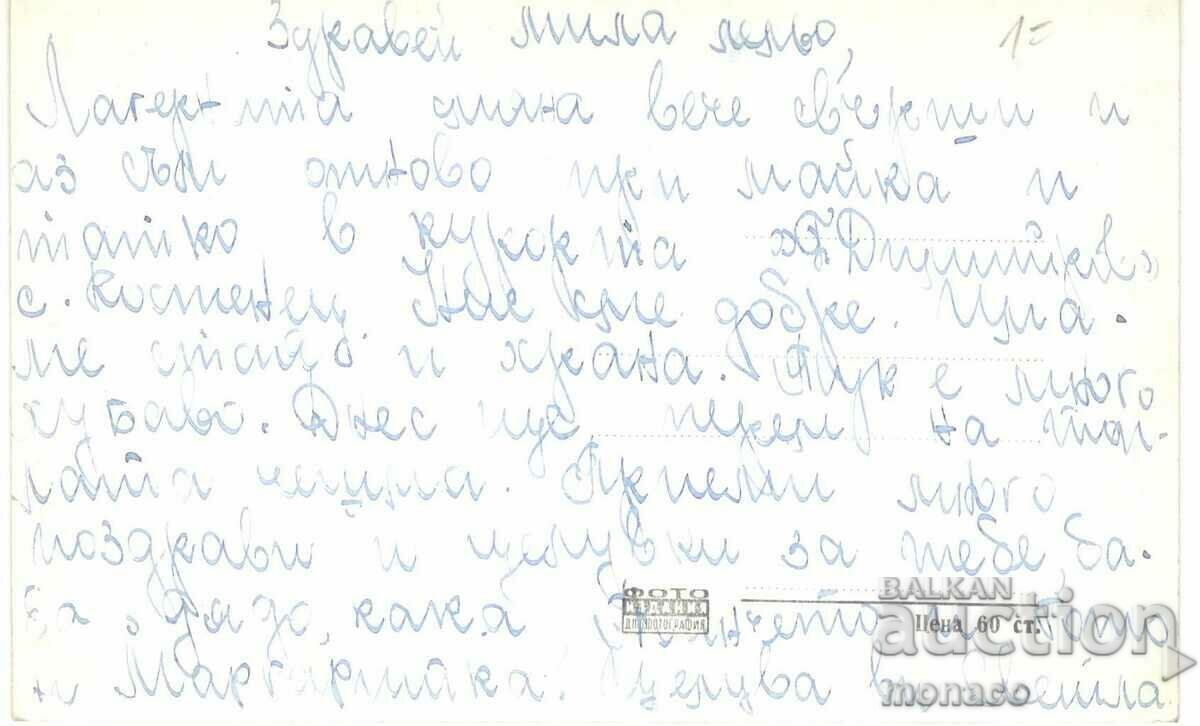 Здравей мила лельо, 1=
Лагерната смяна вече свърши и
аз съм отново при майка и
татко в курорта "Г. Димитров"
с. Костенец. Ние сме добре. Има-
ме стая и храна. Тук е много
хубаво. Днес ще идем на топ-
лата чешма. Приеми много
поздрави и целувки за тебе, ба-
ба, дядо, кака
и Маргаритка. Целува ви
ФОТО
ИЗДАНИЯ
ДП ФОТОГРАФИЯ
Цена 60 ст.
BALKAN
auction
monaco